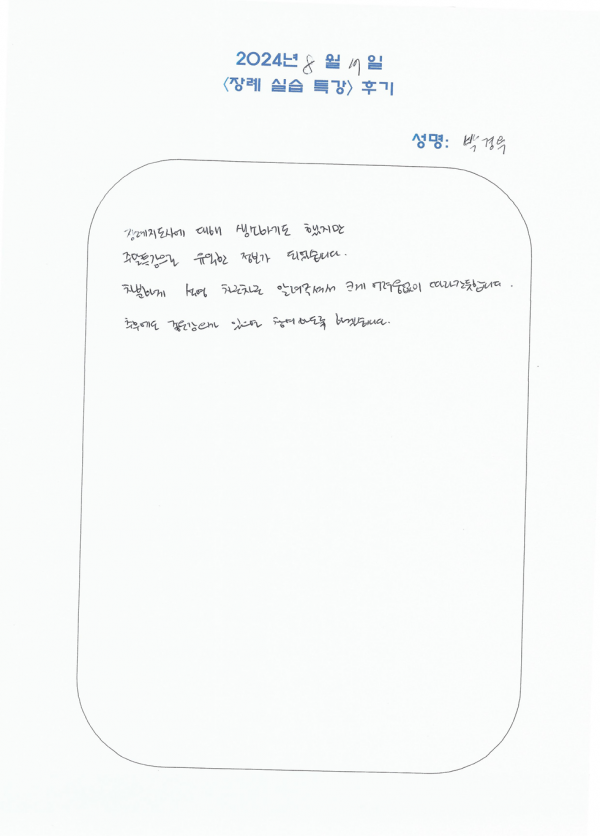 2024년 8월 19일
<장례 실습 특강> 후기
성명: 박경옥
장례지도사에 대해 생소하기도 했지만
주말특강으로 유익한 정보가 되었습니다.
차분하게 설명 차근차근 알려주셔서 크게 어려움없이 따라간듯합니다.
추후에도 있으면 참여하도록 하겠습니다.